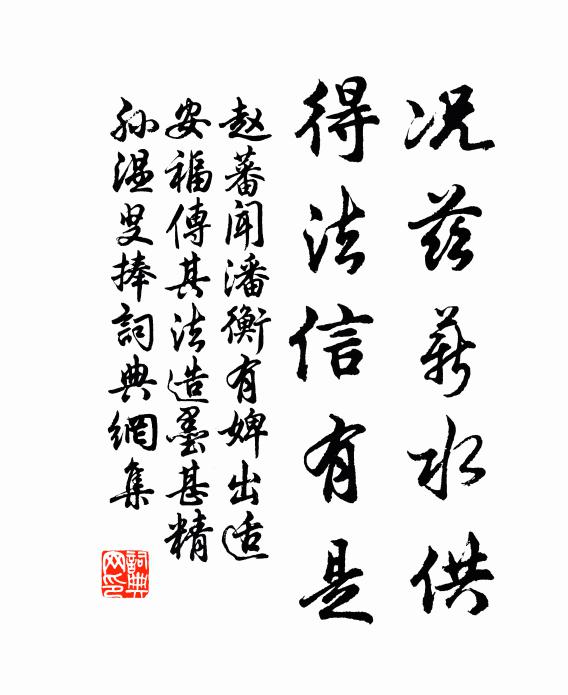 况兹薪水供
得法信有是
赵蕃闻潘衡有婢出适
安福傳其法造墨甚精
孙温叟捧詞典網集
詞典网印